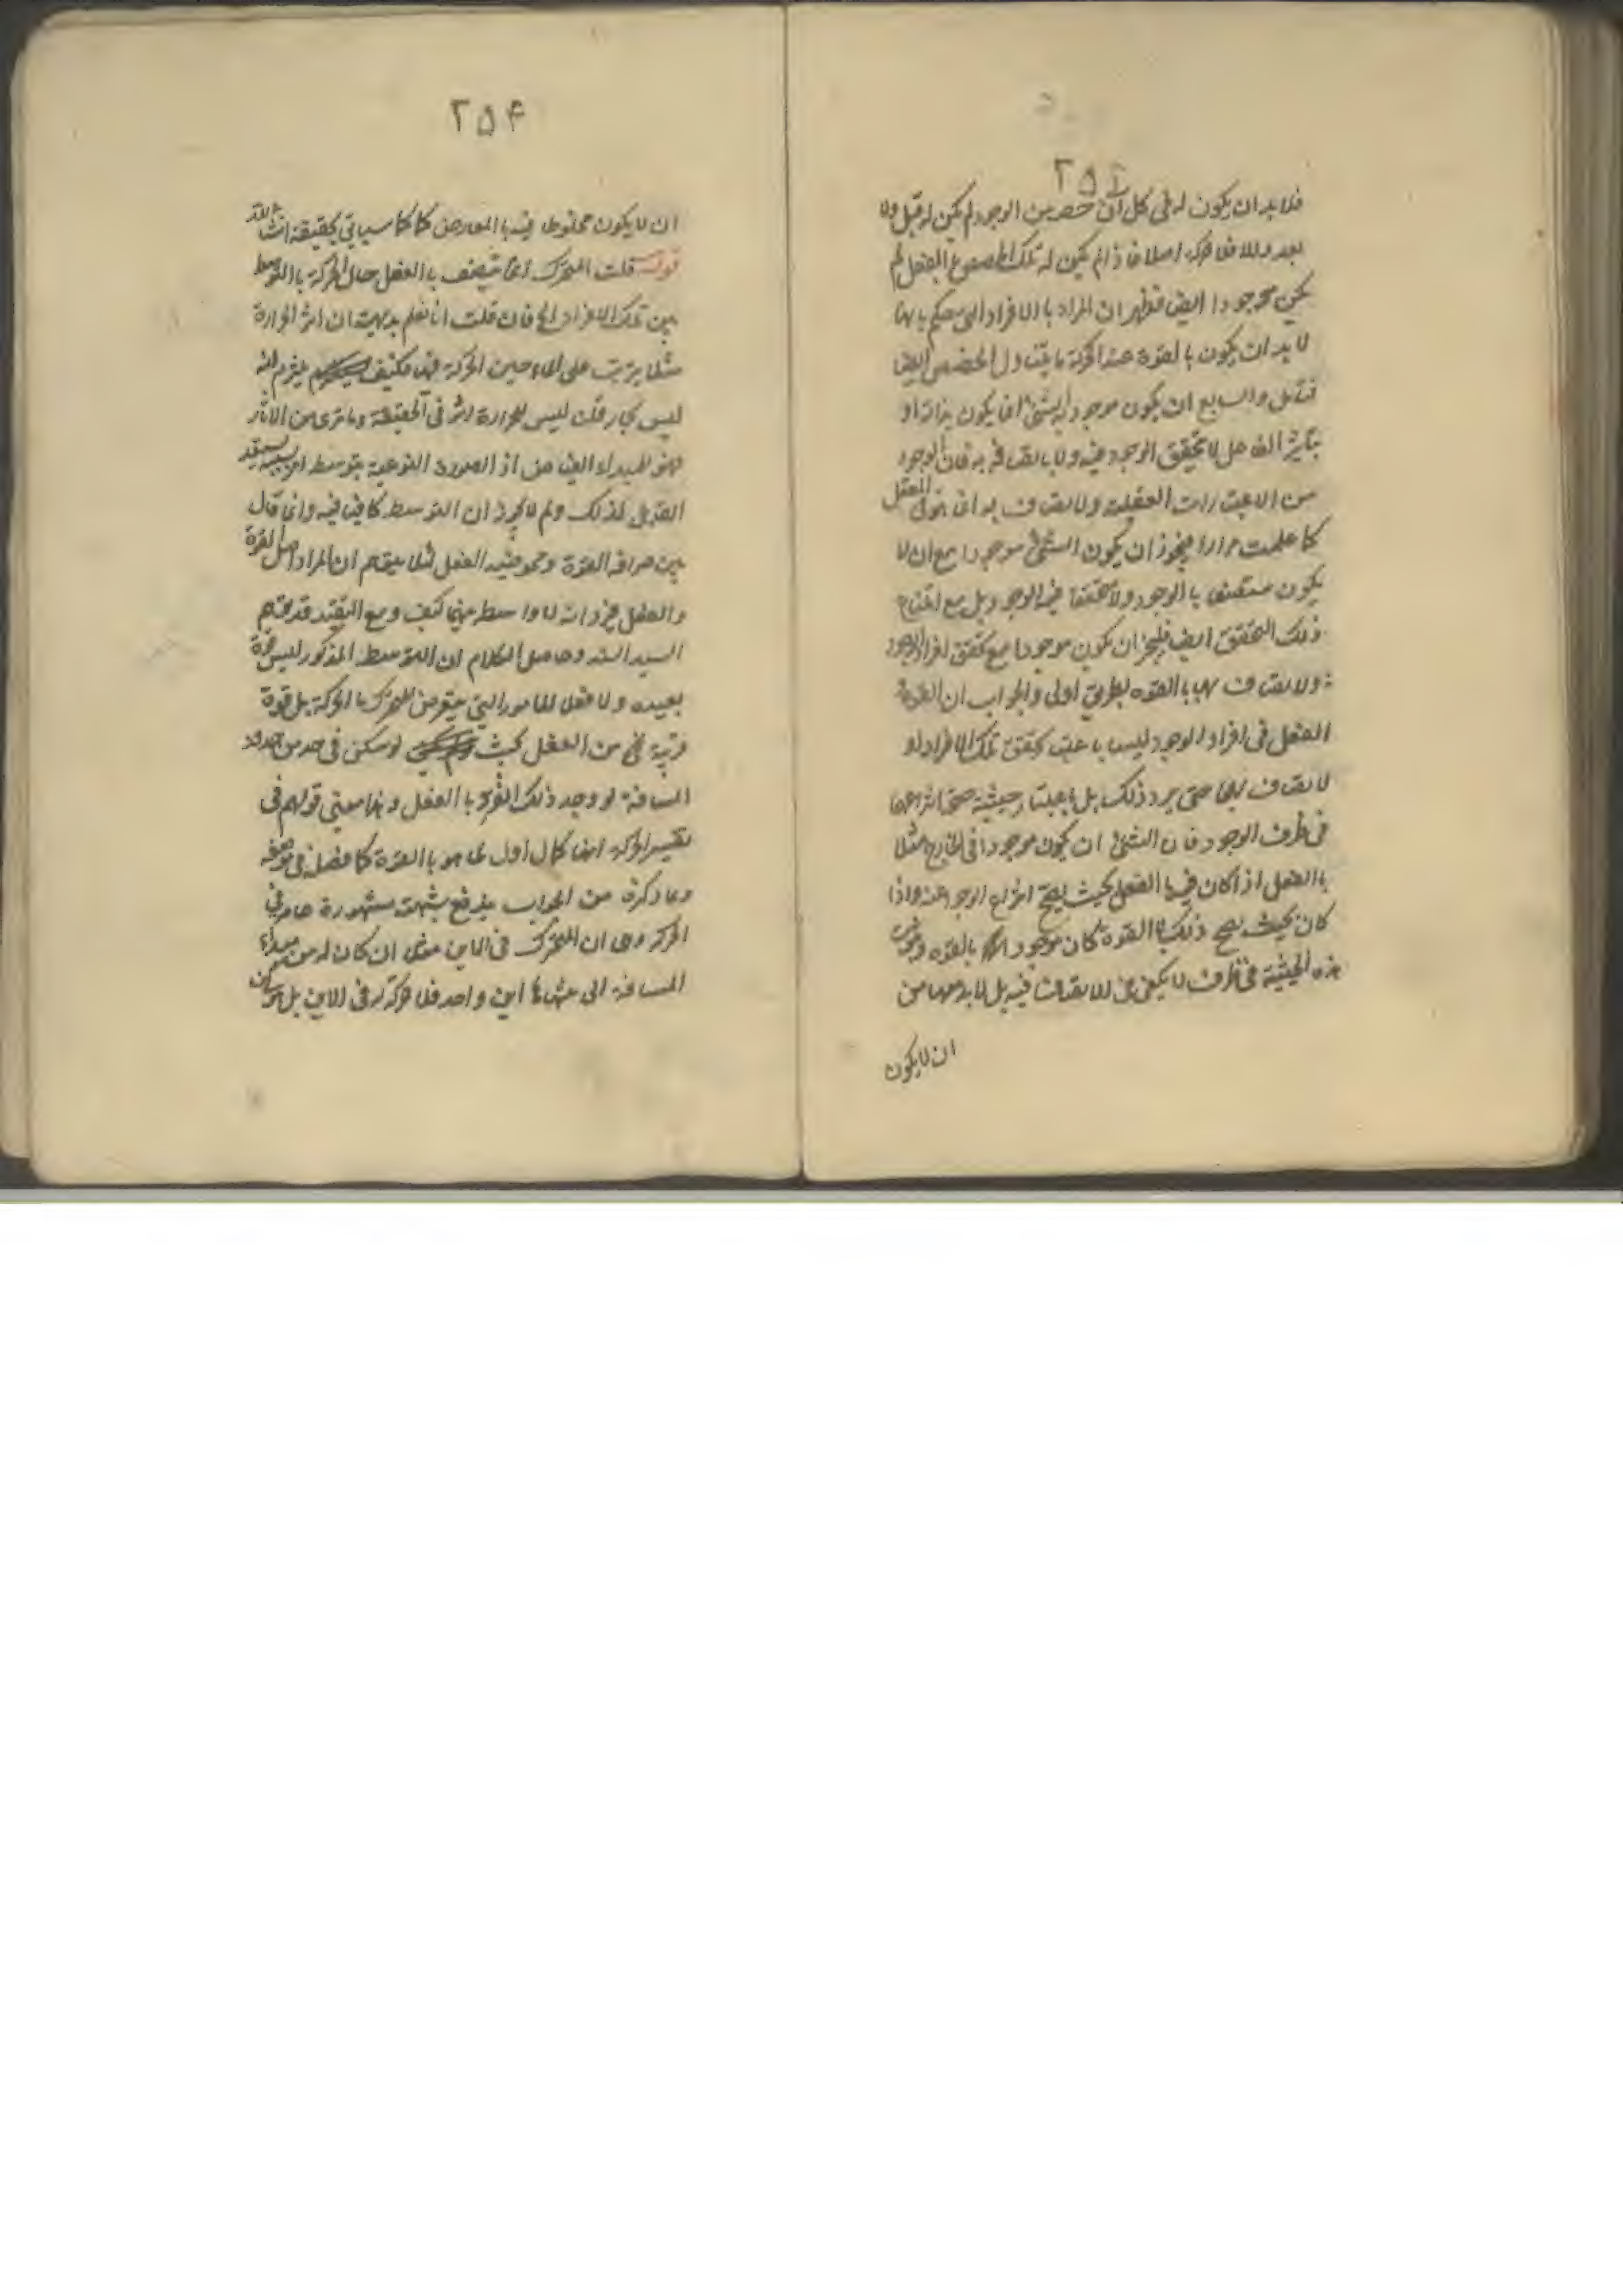 ٢٥٤
فلابد ان يكون له فى كل آن حصه من الوجود لم يكن له قبل ولا
بعد والا فلا حركه اصلا فاذا لم يكن له تلك الحصص بالفعل لم
يكن موجودا ايض فظهر ان المراد بالافراد التى يحكم بانها
لا بد ان يكون بالقوة عند الحركة ما يتناول الحصص ايضا
فتامل والسابع ان يكون موجوديه الشئ انما يكون بذاته او
بتاثير الفاعل لا بتحقق الوجود فيه ولا باتصافه به فان الوجود
من الاعتبارات العقلية والاتصاف به انما هو فى العقل
كما علمت مرارا فيجوز ان يكون الشئ موجودا مع ان لا
يكون متصفا بالوجود ولا متحققا فيه الوجود بل مع امتناع
ذلك التحقق ايض فليجز ان يكون موجودا مع تحقق افراد الوجود
والاتصاف بها بالقوه بطريق اولى والجواب ان القوة
الفعل فى افراد الوجود ليسا باعتبار تحقق تلك الافراد او
الاتصاف بها حتى يرد ذلك بل باعتبار حيثية صحة انتزاعها
فى ظرف الوجود فان الشئ ان يكون موجودا فى الخارج مثلا
بالفعل اذا كان فيه بالفعل بحيث يصح انتزاع الوجود عنه واذا
كان بحيث يصح ذلك بالقوة كان موجودا بالقوه وثبوت
هذه الحيثية فى ظرف لا يكفى للاتصاف فيه بل لا بد معها من
ان لا يكون
٢٥٤
ان لا يكون مخلوطا فيه بالمعارض كما سياتى تحقيقه انشاء الله
قوله قلت المتحرك انما يتصف بالفعل حال الحركة بالتوسط
بين تلك الافراد الخ فان قلت انا نعلم بديهة ان اثر الحرارة
مثلا يترتب على الماء حين الحركة فيها فكيف يلزم انه
ليس بحار قلت ليس للحرارة اثر فى الحقيقة وما ترى من الاثار
فهو للمبداء الفياض او الصورة النوعية بتوسط امر يستعد
القابل لذلك ولم لا يجوز ان التوسط كافيا فيه وانما قال
بين صرافه القوة ومحوضه الفعل لئلا يتوهم ان المراد اصل القوة
والفعل فيرد انه لا واسطه بينهما كيف ومع التقييد قد توهم
السيد السند وحاصل الكلام ان التوسط المذكور ليس قوة
بعيده ولا فعلا للامور التى يتعرض للمتحرك بالحركة بل قوة
قريبة من الفعل بحيث لو سكن فى حد من حدود
المسافة لو وجد ذلك الفرد بالفعل وهذا معنى قولهم فى
تفسير الحركه انها كمال اول لما هو بالقوة كما فصل فى موضعه
وما ذكره من الجواب يندفع شبهة مشهورة عامه فى
الحركة وهى ان المتحرك فى الاين مثلا ان كان له من مبداء
المسافة الى منتهاها اين واحد فلا حركة له فى الاين بل هو ساكن